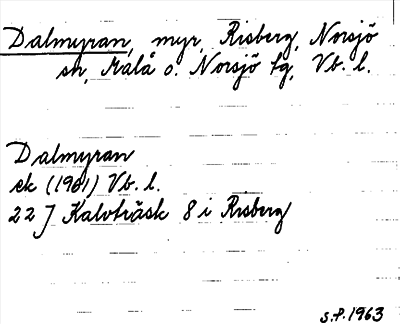 Dalmyran, myr, Risberg, Norsjö
sn, Malå o. Norsjö tg, Vb. l.
Dalmyran
ek (1961) Vb. l.
22 J Kalvträsk 8 i Risberg
S.P. 1963